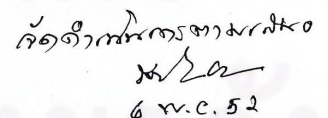 จัดดำเนินการตามเสนอ
6 พ.ค. 52